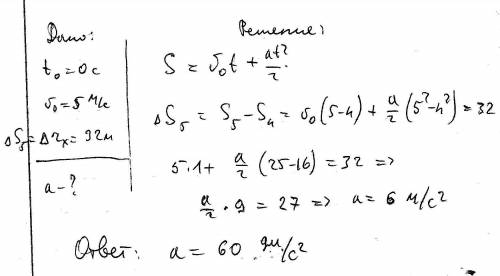 Дано:
t₀ = 0 с
v₀ = 5 м/с
ΔS₅ = Δr_x = 32 м
a - ?
Решение:
S = v₀t + at²/2
ΔS₅ = S₅ - S₄ = v₀(5-4) + a/2 (5² - 4²) = 32
5·1 + a/2 (25-16) = 32 =>
a/2 · 9 = 27 => a = 6 м/с²
Ответ: a = 60 дм/с²